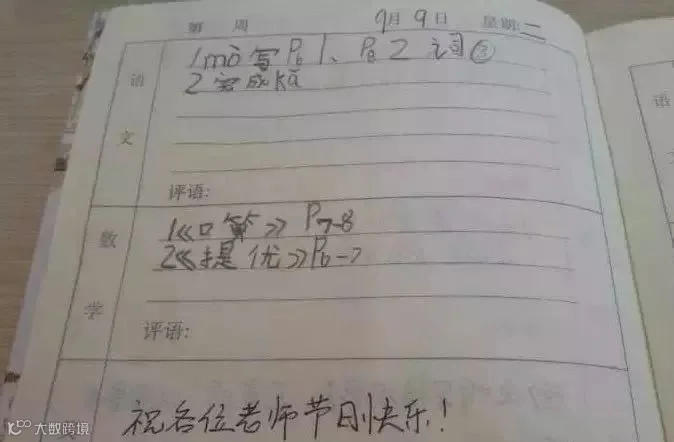 第 周 9月9日 星期:二
语文
1mò写P61、P62词②
2完成kǎ
评语:
数学
1《口算》P7-8
2《提优》P6-7
评语:
祝各位老师节日快乐!
语
大数跨境